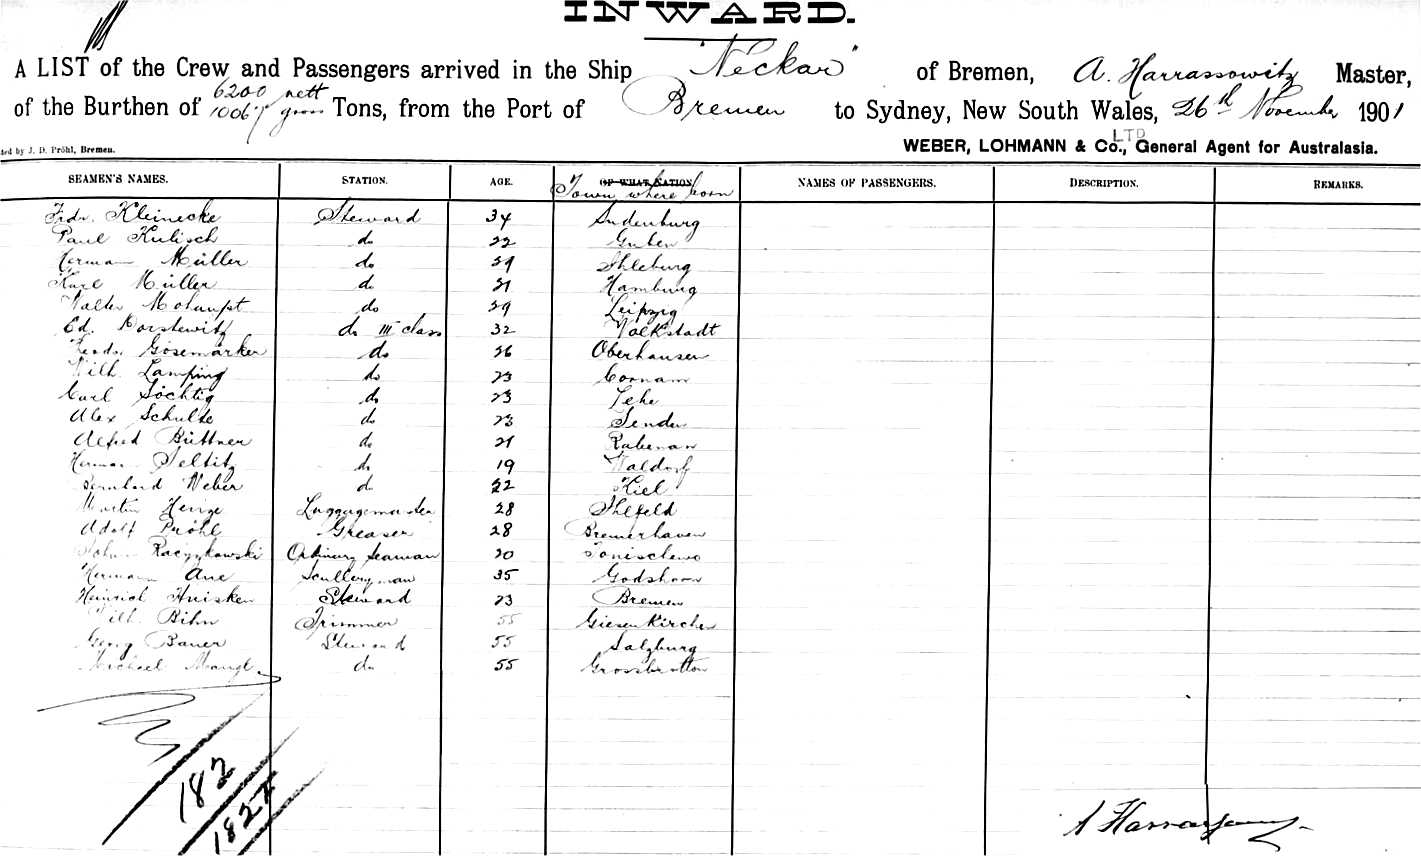 INWARD.
A LIST of the Crew and Passengers arrived in the Ship "Neckar" of Bremen, A. Harrassowitz Master,
of the Burthen of 6200 nett 10067 gross Tons, from the Port of Bremen to Sydney, New South Wales, 26th November 1901
ted by J. D. Pröhl, Bremen.
WEBER, LOHMANN & Co., LTD General Agent for Australasia.
SEAMEN'S NAMES. STATION. AGE. OF WHAT NATION Town where born NAMES OF PASSENGERS. DESCRIPTION. REMARKS.
Frdr. Kleinecke Steward 34 Sudenburg
Paul Kulisch do 22 Guben
Herman Müller do 29 Ihleburg
Karl Müller do 21 Hamburg
Walter Mohaupt do 29 Leipzig
Ed. do III class 32 Volkstadt
Gösemarker do 26 Oberhausen
Wilh. Lamping do 23
Carl Söchtig do 23 Lehe
Alex Schulte do 23 Senden
Alfred Büttner do 21 Rabenau
Herman Seltitz do 19 Waldorf
Bernhard Weber do 22 Kiel
Martin Henze Luggagemaster 28 Ihlfeld
Adolf Pröhl Greaser 28 Bremerhaven
Johann Raczykowski Ordinary Seaman 20
Hermann Aue Scullery man 35 Godshorn
Heinrich Huisken Steward 23 Bremen
Wilh. Bihn Trimmer 55 Giesenkirchen
Georg Bauer Steward 55 Salzburg
Michael Mangl do 55
182
182
A Harrassowitz